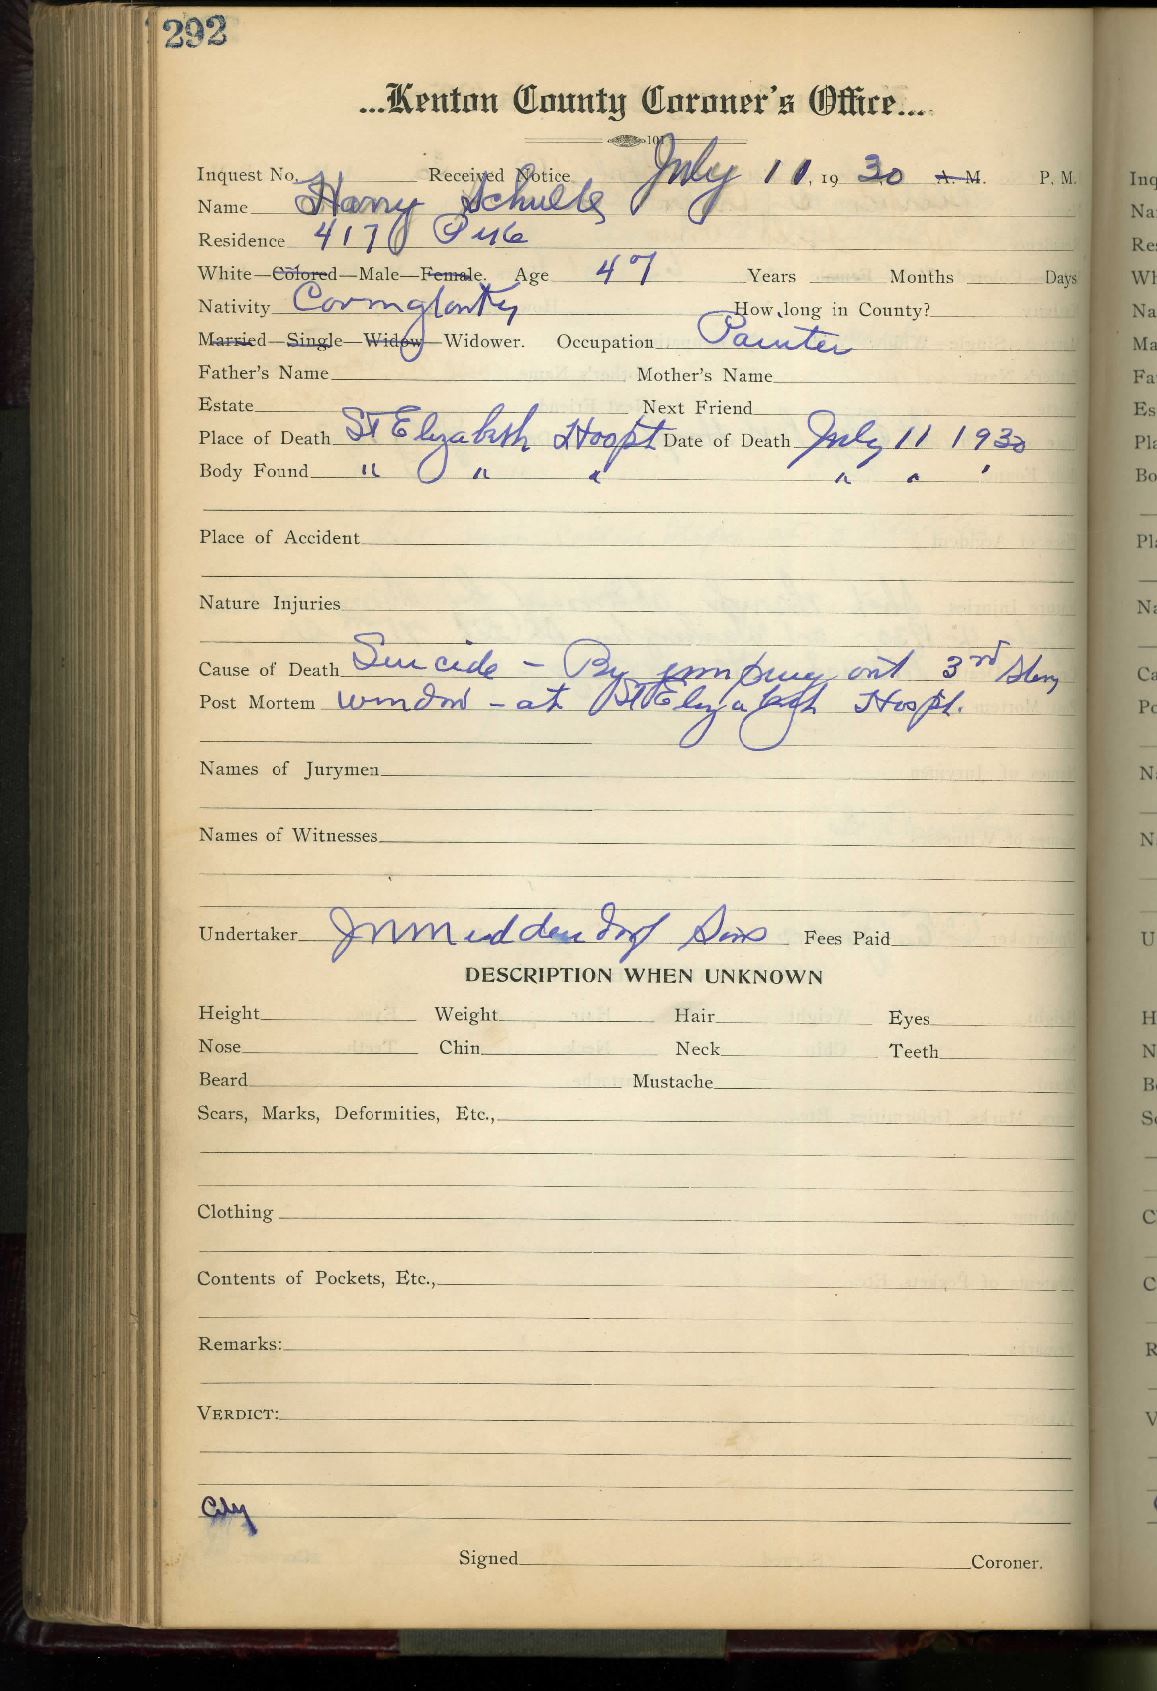 292
...Kenton County Coroner's Office...
101
Inquest No. Received Notice July 11, 1930 A. M. P. M.
Name Harry Schulte
Residence 417 Pike
White—Colored—Male—Female. Age 47 Years Months Days
Nativity Covington Ky How long in County?
Married—Single—Widow—Widower. Occupation Painter
Father's Name Mother's Name
Estate Next Friend
Place of Death St Elizabeth Hospt Date of Death July 11 1930
Body Found " " " " " "
Place of Accident
Nature Injuries
Cause of Death Suicide - By jumping out 3rd Story
Post Mortem window - at St Elizabeth Hospt.
Names of Jurymen
Names of Witnesses
Undertaker J N Middendorf Sons Fees Paid
DESCRIPTION WHEN UNKNOWN
Height Weight Hair Eyes
Nose Chin Neck Teeth
Beard Mustache
Scars, Marks, Deformities, Etc.,
Clothing
Contents of Pockets, Etc.,
Remarks:
VERDICT:
City
Signed Coroner.